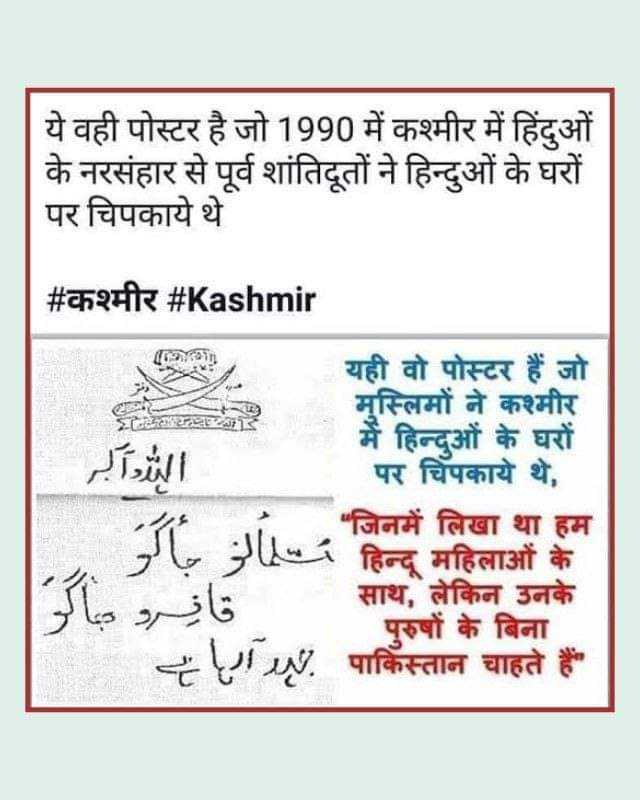 ये वही पोस्टर है जो 1990 में कश्मीर में हिंदुओं
के नरसंहार से पूर्व शांतिदूतों ने हिन्दुओं के घरों
पर चिपकाये थे
#कश्मीर #Kashmir
اللہ اکبر
مُسلمانو جاگو
قافِرو بھاگو
جہد آرہا ہے
यही वो पोस्टर हैं जो
मुस्लिमों ने कश्मीर
में हिन्दुओं के घरों
पर चिपकाये थे,
"जिनमें लिखा था हम
हिन्दू महिलाओं के
साथ, लेकिन उनके
पुरुषों के बिना
पाकिस्तान चाहते हैं"